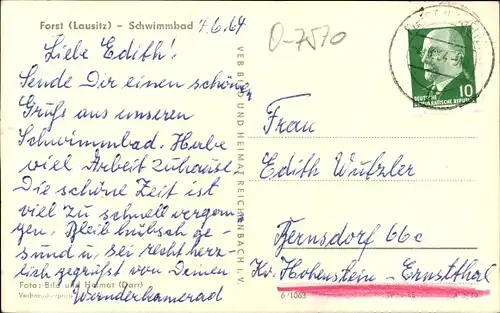 Forst (Lausitz) – Schwimmbad
4.6.64
Liebe Edith!
Sende Dir einen schönen
Gruß aus unserem
Schwimmbad. Habe
viel Arbeit zuhause.
Die schöne Zeit ist
viel zu schnell vergan-
gen. Bleib hübsch ge-
sund u. sei recht herz-
lich gegrüßt von Deinem
Wanderkamerad
Foto: Bild und Heimat (Darr)
VEB BILD UND HEIMAT REICHENBACH I. V.
O-7570
10
DEUTSCHE
DEMOKRATISCHE REPUBLIK
Frau
Edith Wutzler
Bernsdorf 66c
Kr. Hohenstein-Ernstthal